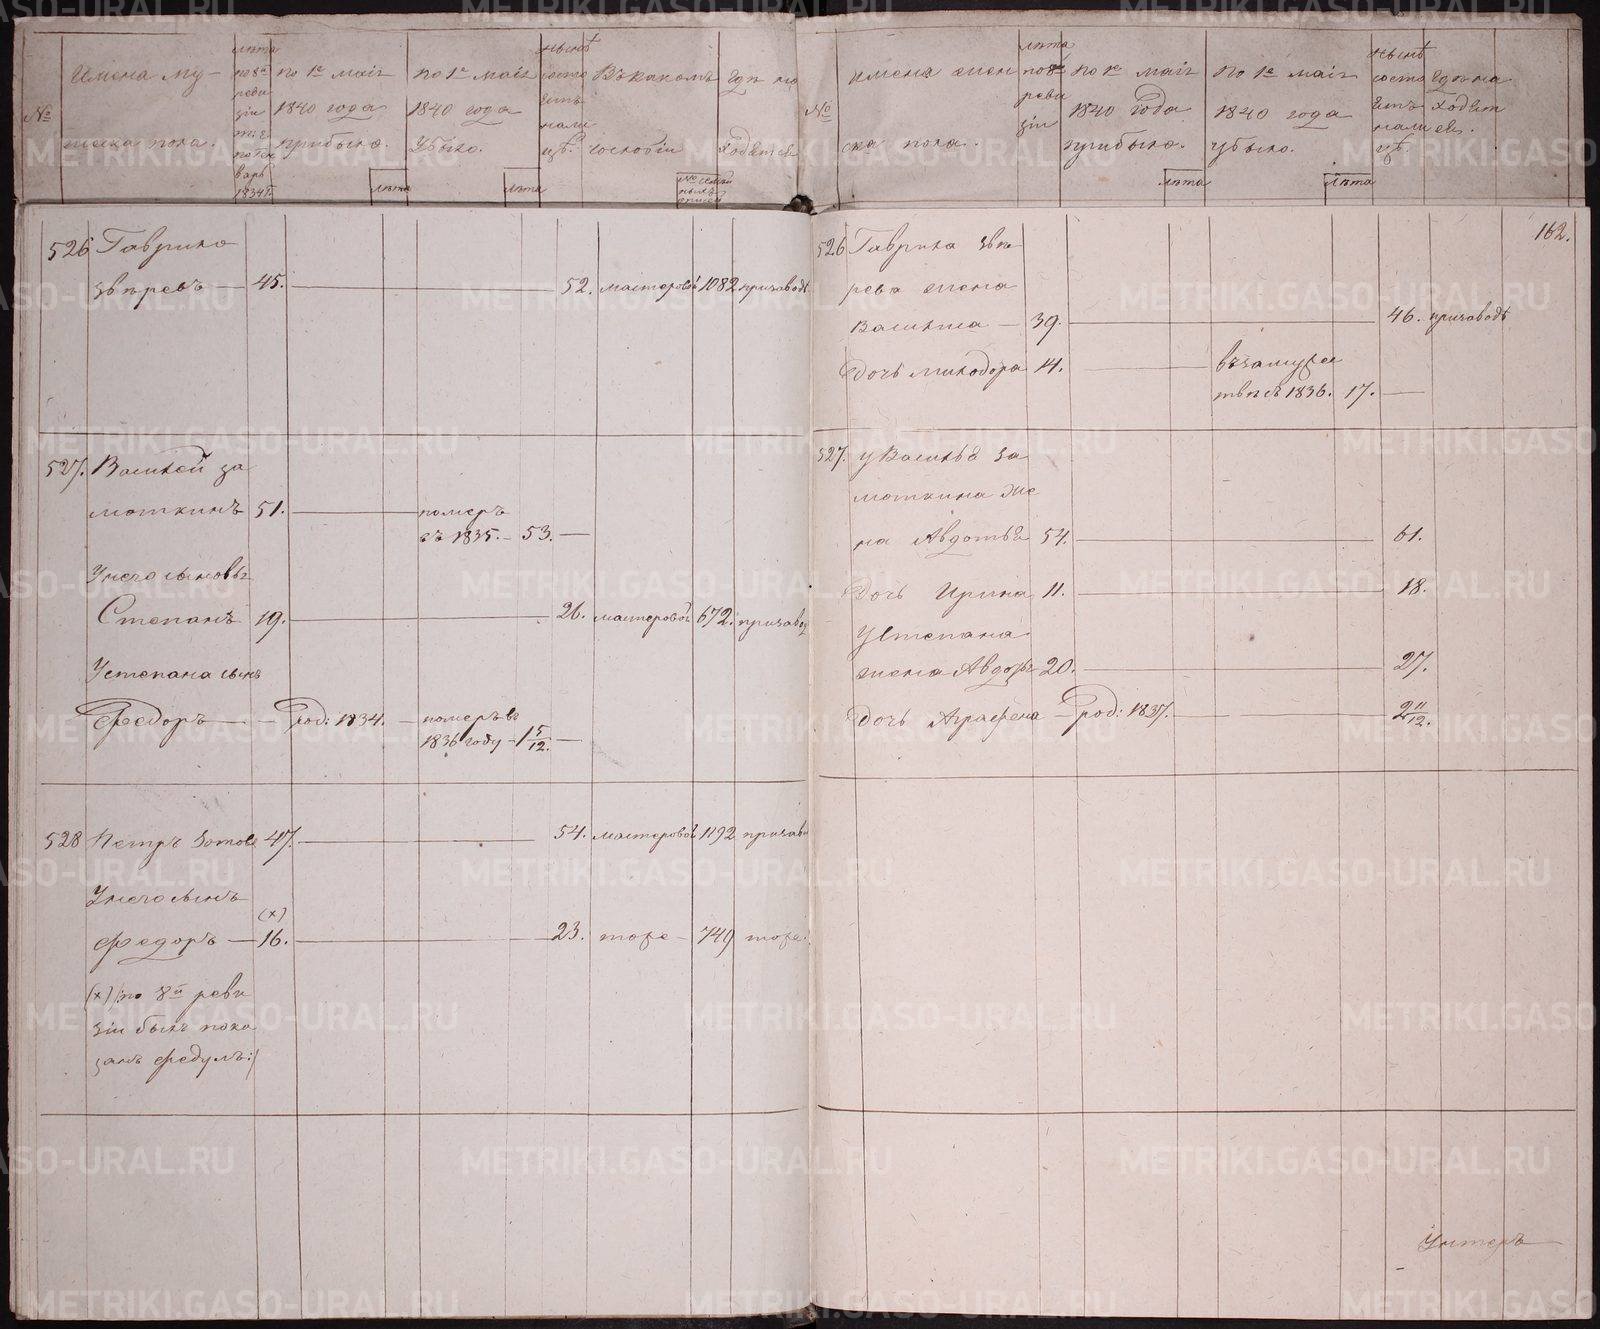 №
Имена му-
жеска пола.
лѣта
по 8й
реви
зіи
по ген
варь
1834 г.
по 1е маія
1840 года
прибыло.
лѣта
по 1е маія
1840 года
убыло.
лѣта
нынѣ
состо
итъ
нали
цѣ.
Въ какомъ
сословіи
№ семей
ныхъ
списк
Гдѣ на
ходятся
526 Гаврило
Звѣревъ — 45. 52. мастеровой 1082 при заводѣ
527. Василей За
моткинъ 51. померъ
въ 1835. — 53. —
У него сыновья
Степанъ 19. 26. мастеровой 672. при завод
У Степана сынъ
Федоръ — род: 1834. — померъ въ
1836 году — 1 5/12. —
528 Петръ Зотовъ 47. 54. мастеровой 1192 при заво
У него сынъ
(х)
Федоръ — 16. 23. тоже — 749 тоже.
(х) по 8й реви
зіи былъ пока
занъ Федулъ:/
№
Имена жен
ска пола.
лѣта
по 8й
реви
зіи
по 1е маія
1840 года
прибыло.
лѣта
по 1е маія
1840 года
убыло.
лѣта
нынѣ
состо
итъ
нали
цѣ
Гдѣ на
ходят
ся.
162.
526 Гаврила Звѣ
рева жена
Василиса — 39. 46. при заводѣ
Дочь Миходора 14. въ замуже
ствѣ съ 1836. 17. —
527. У Василья За
моткина же
на Авдотья 54. 61.
Дочь Ирина 11. 18.
У Степана
жена Авдотья 20. 27.
Дочь Аграфена — род: 1837. 2 11/12.
Унтеръ
METRIKI.GASO-URAL.RU